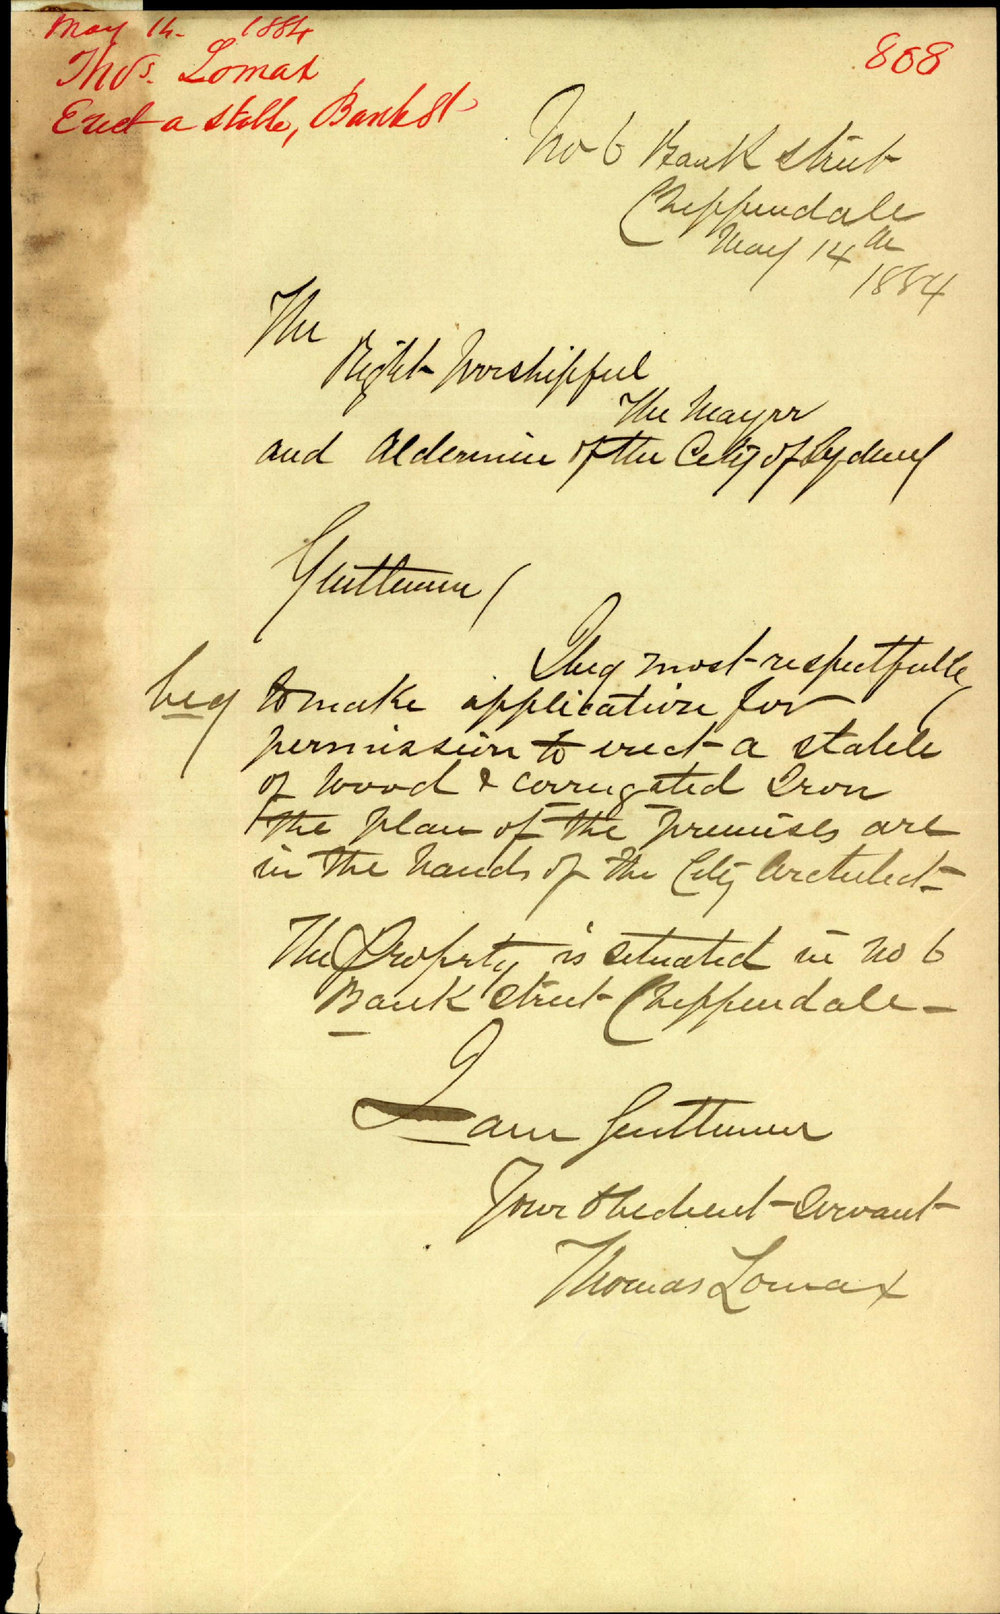 May 14. 1884
Thos. Lomax
Erect a stable, Bank St
808
No 6 Bank Street
Chippendale
May 14th
1884
The
Right Worshipful
The Mayor
and Aldermen of the City of Sydney
Gentlemen
I beg most respectfully
beg to make application for
permission to erect a stable
of Wood & Corrugated Iron
the plan of the premises are
in the hands of the City Architect
The Property is situated in No 6
Bank Street Chippendale
I am Gentlemen
Your Obedient Servant
Thomas Lomax